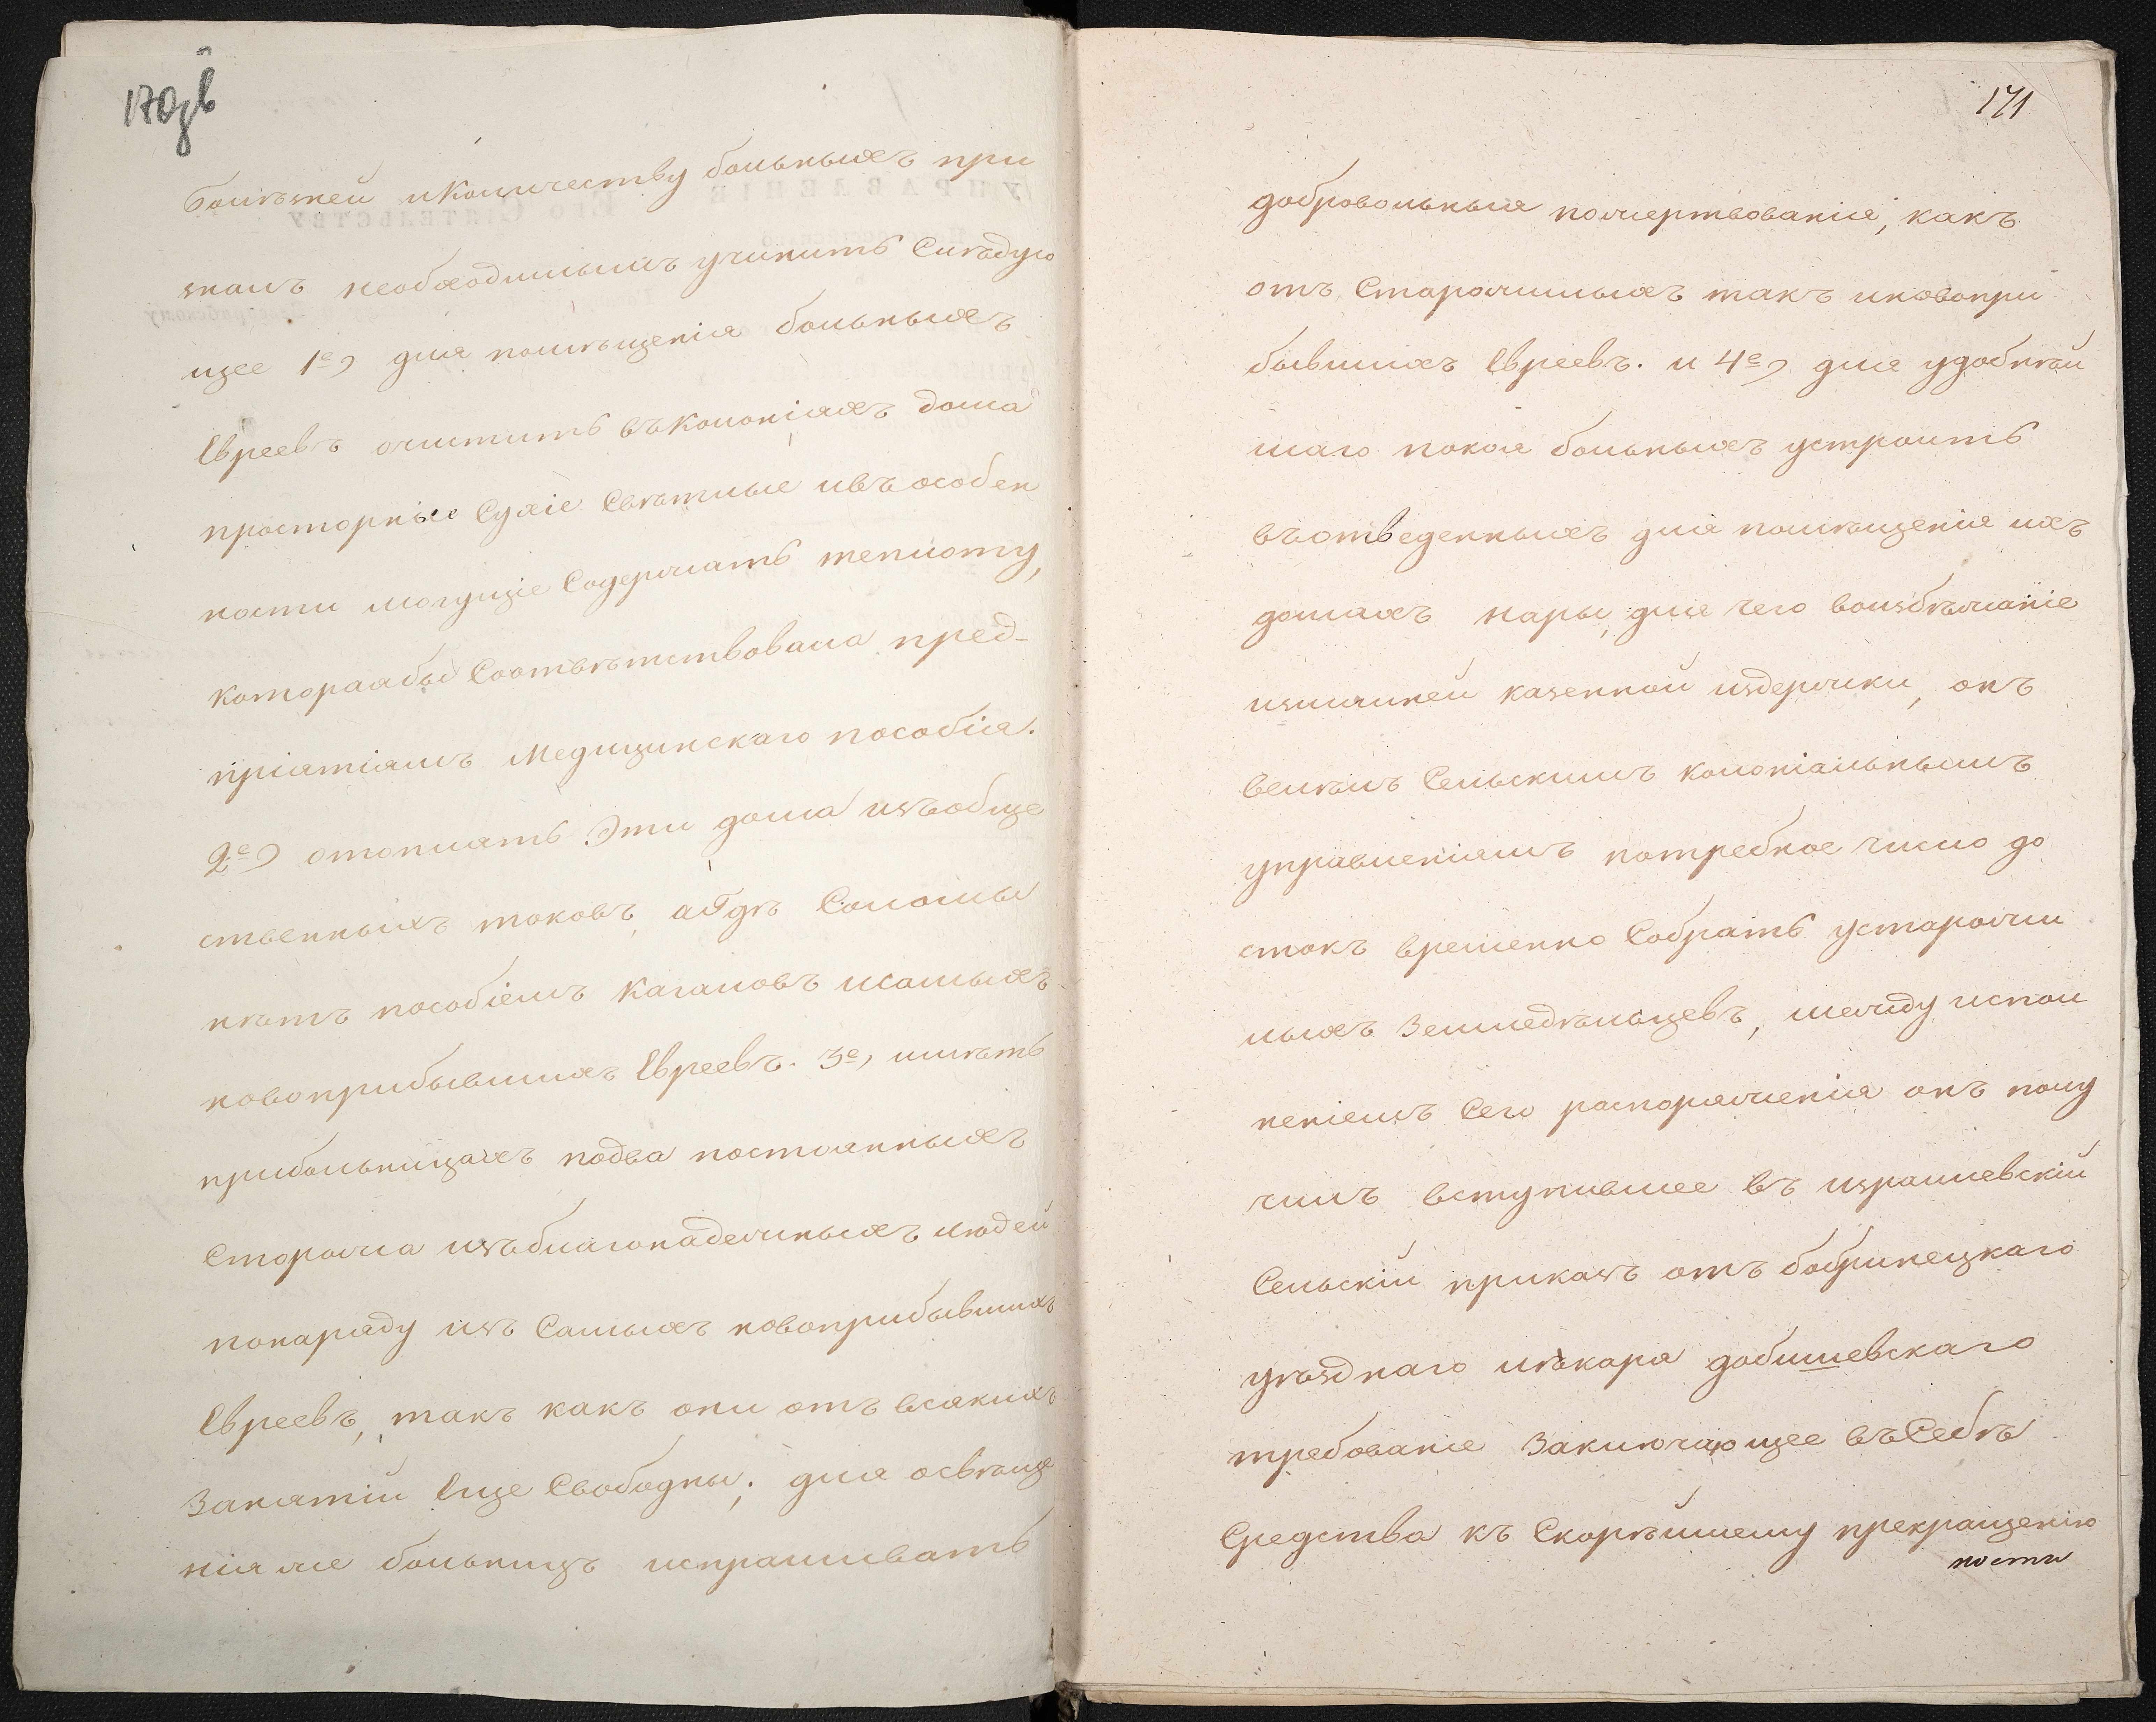 170зв
болѣзней и количеству больныхъ при
зналъ необходимымъ учинить Слѣдую
щее 1е, для помѣщенія больныхъ
Евреевъ очистить въ колоніяхъ дома
просторные Сухіе Свѣтлые и въ особен
ности могущіе Содержать теплоту,
которая бы Соотвѣтствовала пред-
пріятіямъ Медицинскаго пособія.
2е, отоплять Эти дома изъ обще
ственныхъ токовъ, а Гдѣ Соломы
нѣтъ пособіемъ Кагаловъ и Самыхъ
новоприбывшихъ Евреевъ. 3е, имѣть
при больницахъ по два постоянныхъ
Сторожа изъ благонадежныхъ людей
по наряду изъ Самыхъ новоприбывшихъ
Евреевъ, такъ какъ они отъ всякихъ
Занятій Еще Свободны; для освѣще
нія же больницъ испрашивать
171
добровольныя пожертвованія, какъ
отъ Старожилыхъ такъ и новопри
бывшихъ Евреевъ. и 4е, для удобнѣй
шаго покоя больныхъ устроить
въ отведенныхъ для помѣщенія ихъ
домахъ нары, для чего во избѣжаніе
излишней казенной издержки, онъ
велѣлъ Сельскимъ колоніальнымъ
управленіямъ потребное число до
сокъ временно Собрать у старожи
лыхъ Земледѣльцевъ, между испол
неніемъ Сего распоряженія онъ полу
чилъ вступившее въ израилевскій
Сельскій приказъ отъ бобринецкаго
уѣзднаго лѣкаря добишевскаго
требованіе Заключающее въ Себѣ
Средства къ Скорѣйшему прекращенію